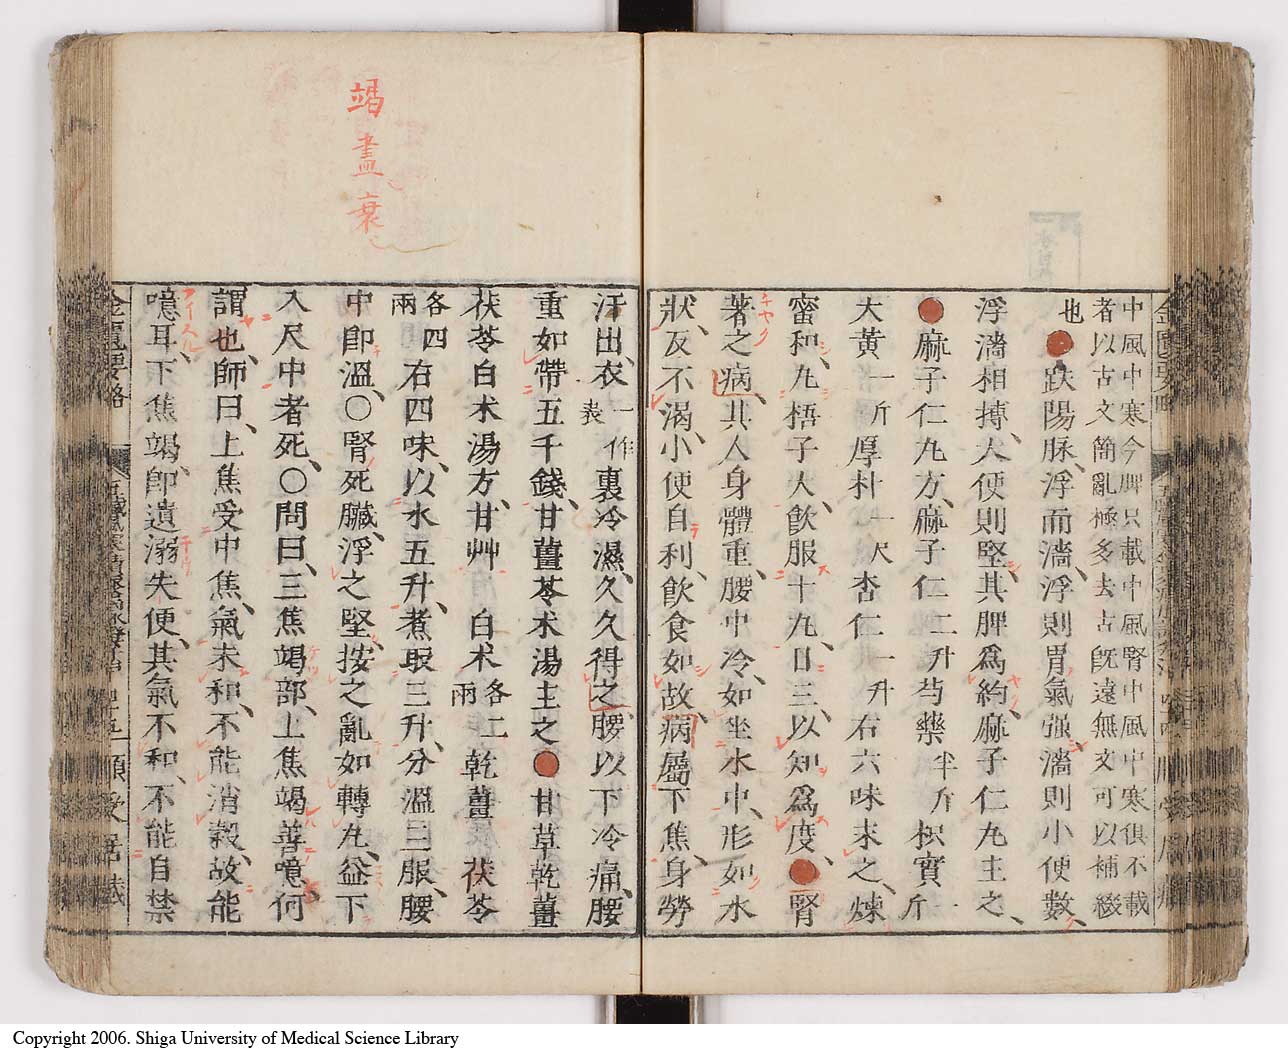 中風中寒今脾只載中風腎中風中寒俱不載
者以古文簡亂極多去古旣遠無文可以補綴
也 趺陽脉浮而濇浮則胃氣强濇則小便數
浮濇相摶大便則堅其脾爲約麻子仁丸主之
麻子仁丸方麻子仁二升芍藥半斤枳實一斤
大黃一斤厚朴一尺杏仁一升右六味末之煉
蜜和丸梧子大飮服十丸日三以知爲度 腎
著之病其人身體重腰中冷如坐水中形如水
狀反不渴小便自利飮食如故病屬下焦身勞
汗出衣一作表裏冷濕久久得之腰以下冷痛腰
重如帶五千錢甘薑苓朮湯主之 甘草乾薑
茯苓白朮湯方甘艸 白朮各二兩 乾薑 茯苓
各四兩 右四味以水五升煮取三升分溫三服腰
中卽溫〇腎死臟浮之堅按之亂如轉丸益下
入尺中者死〇問曰三焦竭部上焦竭善噫何
謂也師曰上焦受中焦氣未和不能消穀故能
噫耳下焦竭卽遺溺失便其氣不和不能自禁
金匱要略
竭盡衰
Copyright 2006. Shiga University of Medical Science Library